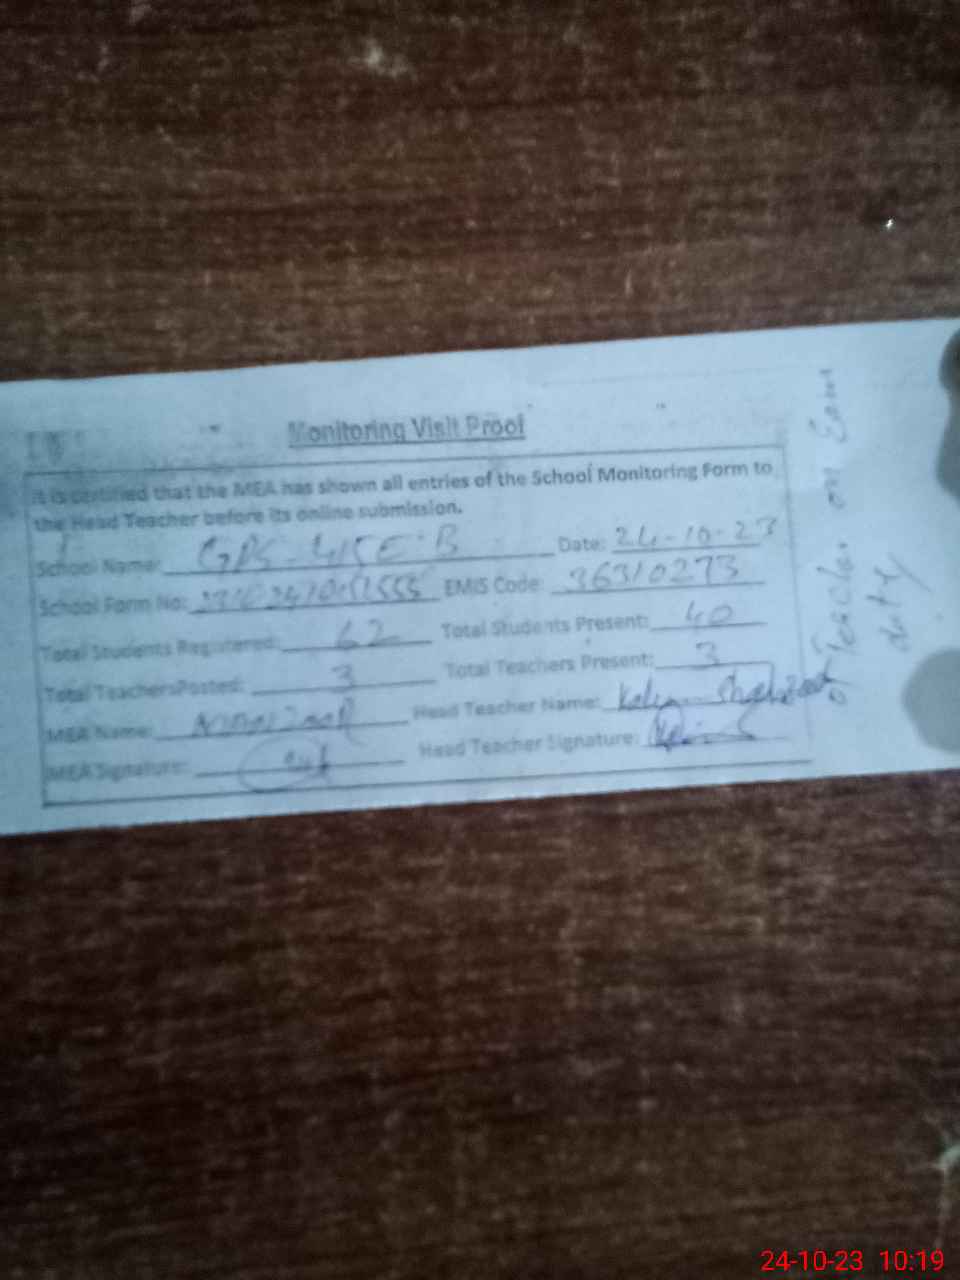 Monitoring Visit Proof
It is certified that the MEA has shown all entries of the School Monitoring Form to
the Head Teacher before its online submission.
School Name: GPS Date: 24-10-23
School Form No: EMIS Code: 36310273
Total Students Registered: 62 Total Students Present: 40
Total Teachers Posted: 3 Total Teachers Present: 3
MEA Name: Head Teacher Name:
MEA Signature: Head Teacher Signature:
Teacher on Exam
duty
24-10-23 10:19